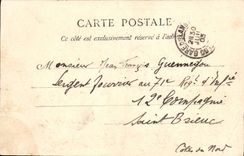 CARTE POSTALE
Ce côté est exclusivement réservé à l'adresse
Monsieur Jean François Guennegou
Sergent fourrier au 71e Régt d'Infie
12e Compagnie
Saint Brieuc
Côtes du Nord